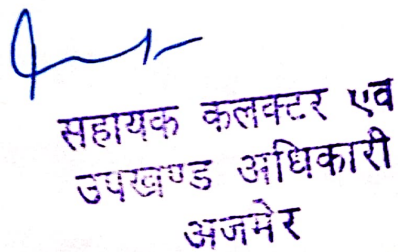 सहायक कलक्टर एव
उपखण्ड अधिकारी
अजमेर